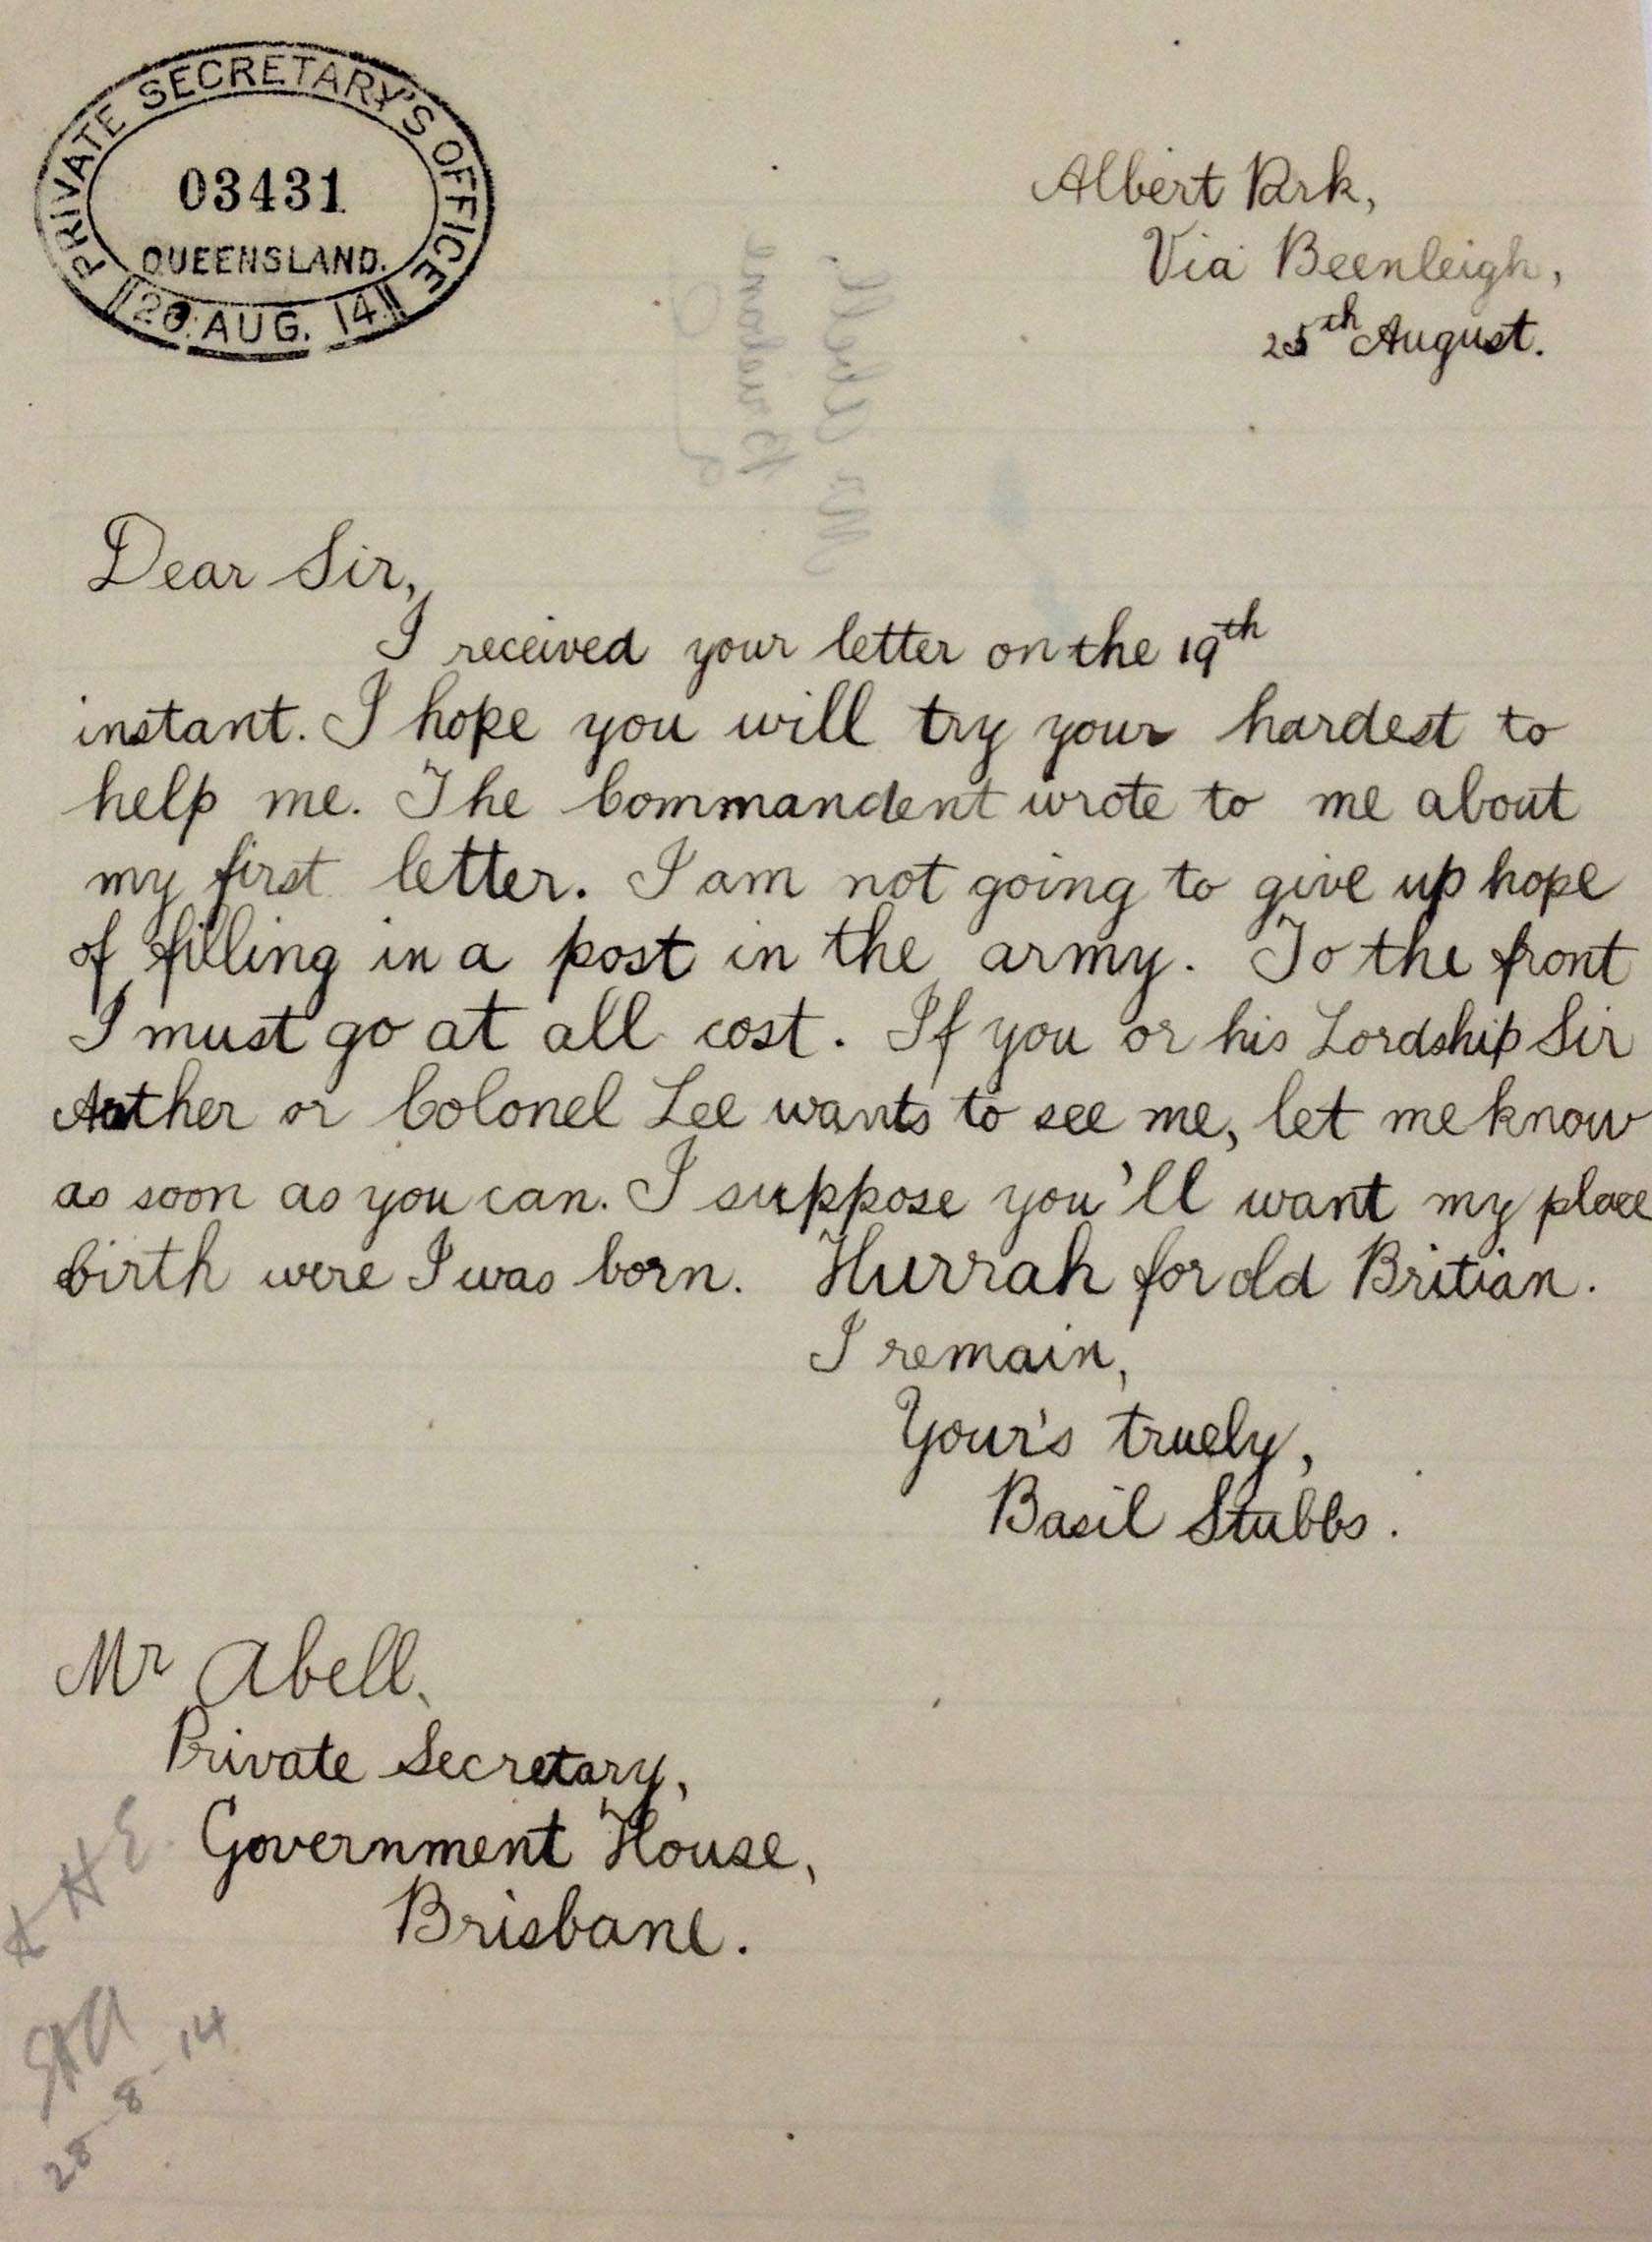 PRIVATE SECRETARY'S OFFICE
03431
QUEENSLAND.
AUG. 14
Albert Park,
Via Beenleigh,
25th August.
Dear Sir,
I received your letter on the 19th
instant. I hope you will try your hardest to
help me. The Commandent wrote to me about
my first letter. I am not going to give up hope
of filling in a post in the army. To the front
I must go at all cost. If you or his Lordship Sir
Arther or Colonel Lee wants to see me, let me know
as soon as you can. I suppose you'll want my place
birth were I was born. Hurrah for old Britian.
I remain,
Your's truely,
Basil Stubbs.
Mr Abell,
Private Secretary,
Government House,
Brisbane.
28-8-14